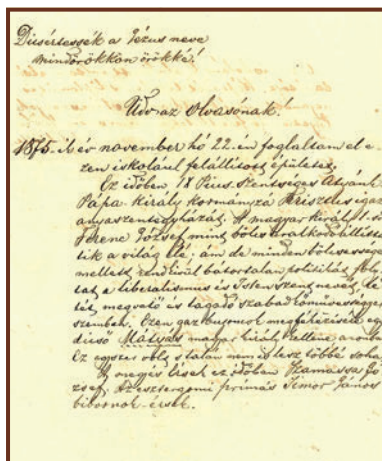 Dicsértessék a Jézus neve
mindörökkön örökké!
Üdv az olvasónak!
1875.-ik év november hó 22.-én foglaltam el e-
zen iskolául felállított épületet.
Ez időben IX Pius. szentséges Atyánk
Pápa-király kormányza Krisztus igaz
anyaszentegyházát. A magyar királyt I-ső
Ferenc József mint bölcs uralkodó
tik a világ elé; ám de minden bölcsessége
mellett rendkivül bátortalan politikát foly-
tat a liberalismus és Isten szent nevét, lé-
tét megvető és tagadó szabadkőművességgel
szemben. Ezen gaz megfékezésére egy
dicső Mátyás magyar király kellene, aronban
Ez egyszer volt s talán nem is lesz többé soha.
A megyés lisek ez időben Szamassa Jó-
zsef. Az esztergomi prímás Simor János
bibornok-érsek.